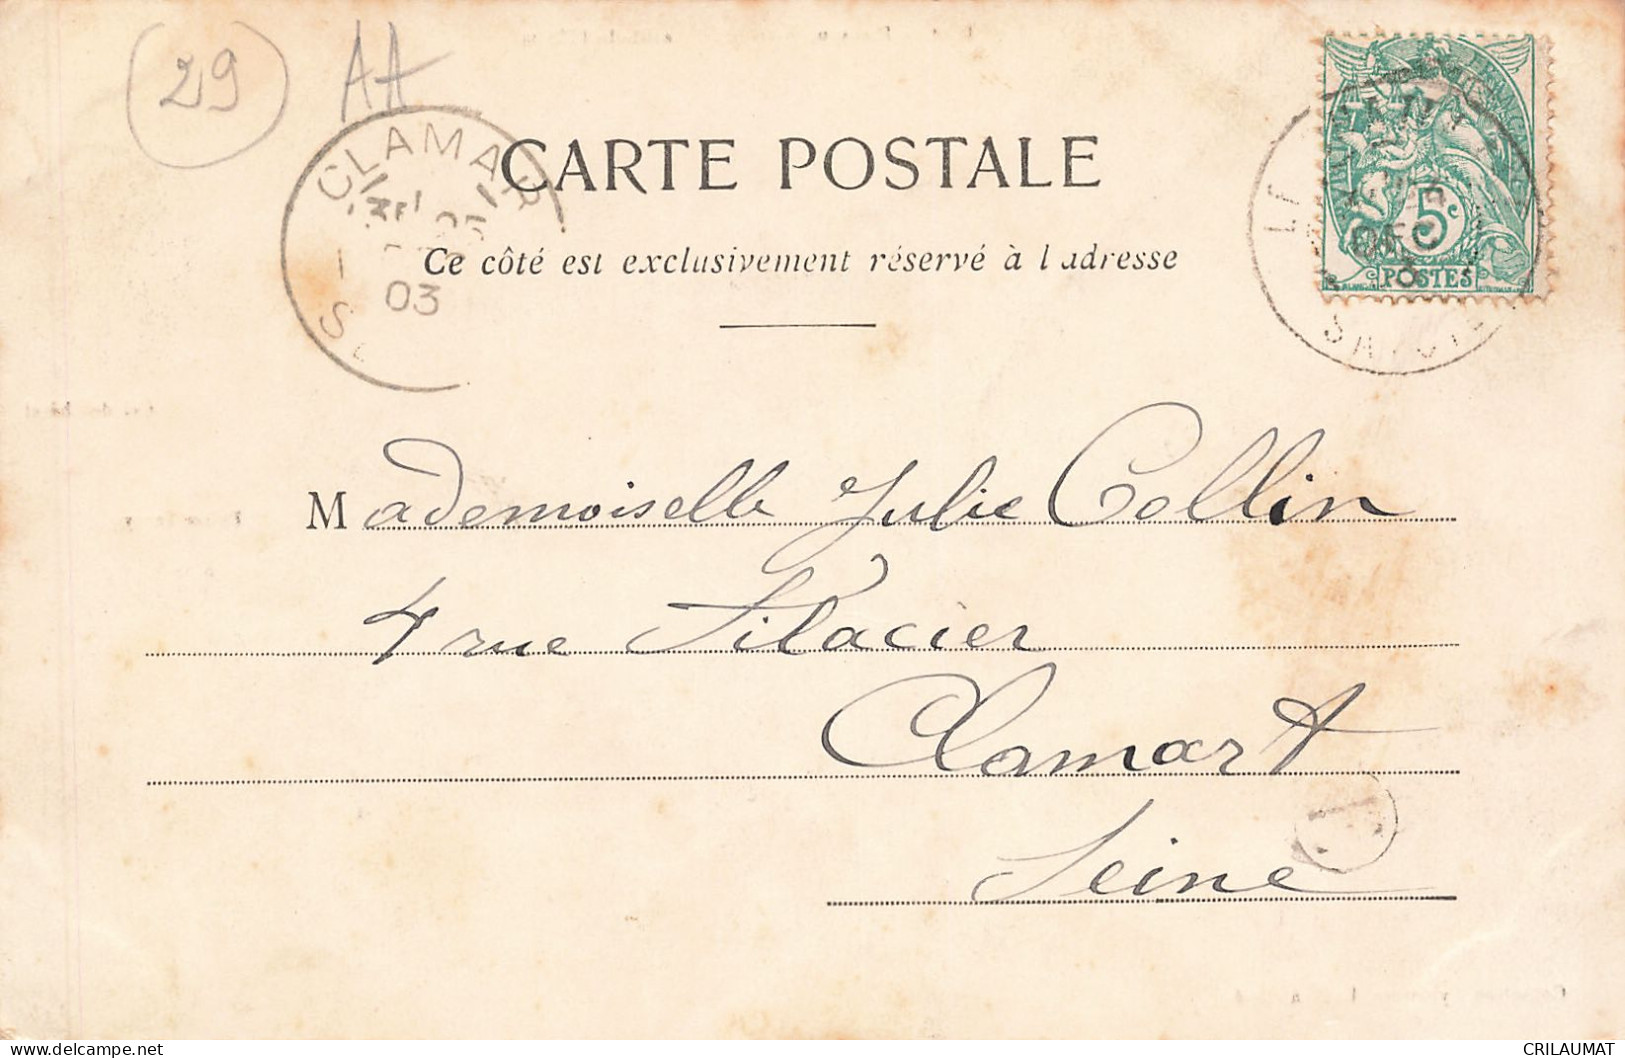 29
AA
CLAMAR
03
S
CARTE POSTALE
Ce côté est exclusivement réservé à l'adresse
5c
POSTES
DEC
Mademoiselle Julie Collin
4 rue Filacier
Clamart
Seine
CRILAUMAT